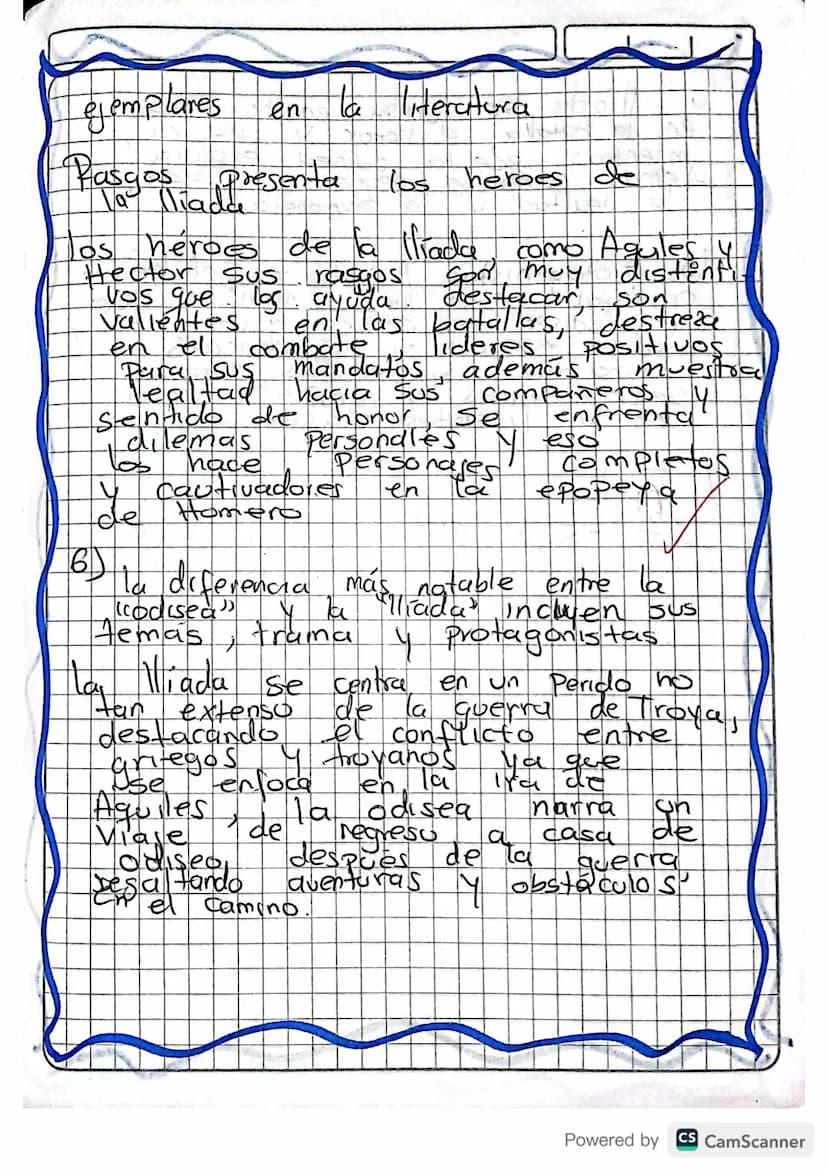 ejemplares en la literatura
Rasgos presenta los heroes de
la Iliada
los héroes de la Ilíada, como Aquiles y
Hector sus rasgos son muy distinti-
vos que los ayuda destacar, son
valientes en las batallas, destreza
en el combate, lideres positivos
para sus mandatos, además muestra
lealtad hacia sus compañeros y
sentido de honor, se enfrenta
dilemas personales y eso
los hace personajes completos
y cautivadores en la epopeya
de Homero
6)
la diferencia más notable entre la
"odisea" y la "Ilíada" incluyen sus
temas, trama y protagonistas
la Ilíada se centra en un perido no
tan extenso de la guerra de Troya,
destacando el conflicto entre
griegos y troyanos ya que
se enfoca en la ira de
Aquiles, la odisea narra un
viaje de regreso a casa de
odiseo, después de la guerra
resaltando aventuras y obstáculos
en el camino.
Powered by CS CamScanner